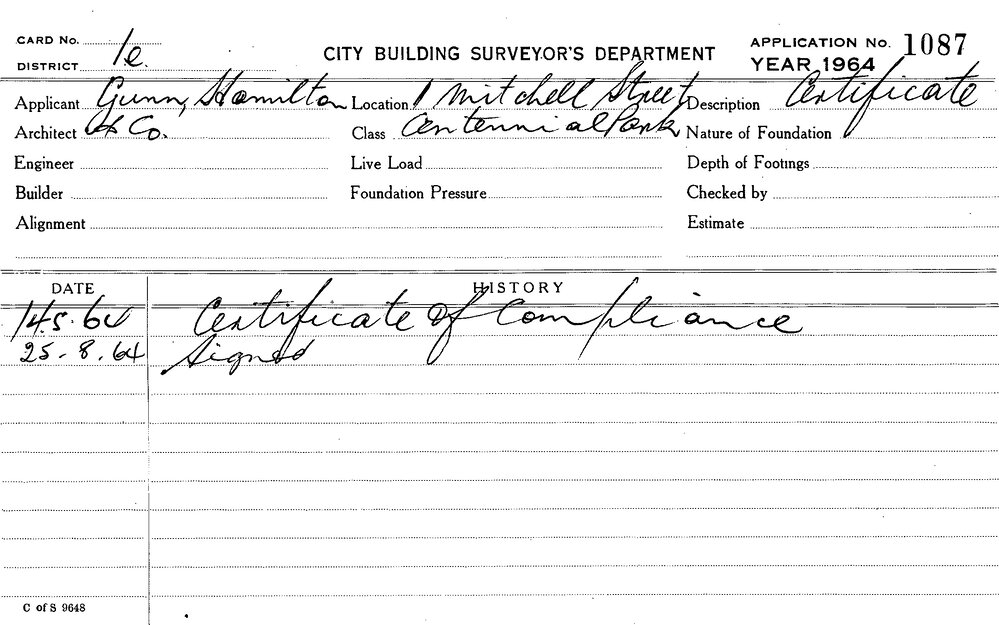 CARD No.
DISTRICT 1e.
CITY BUILDING SURVEYOR'S DEPARTMENT
APPLICATION No. 1087
YEAR 1964
Applicant Gunn, Hamilton Location 1 Mitchell Street Description Certificate
Architect & Co. Class Centennial Park Nature of Foundation
Engineer Live Load Depth of Footings
Builder Foundation Pressure Checked by
Alignment Estimate
DATE HISTORY
14.5.64 Certificate of Compliance
25.8.64 Signed
C of S 9648